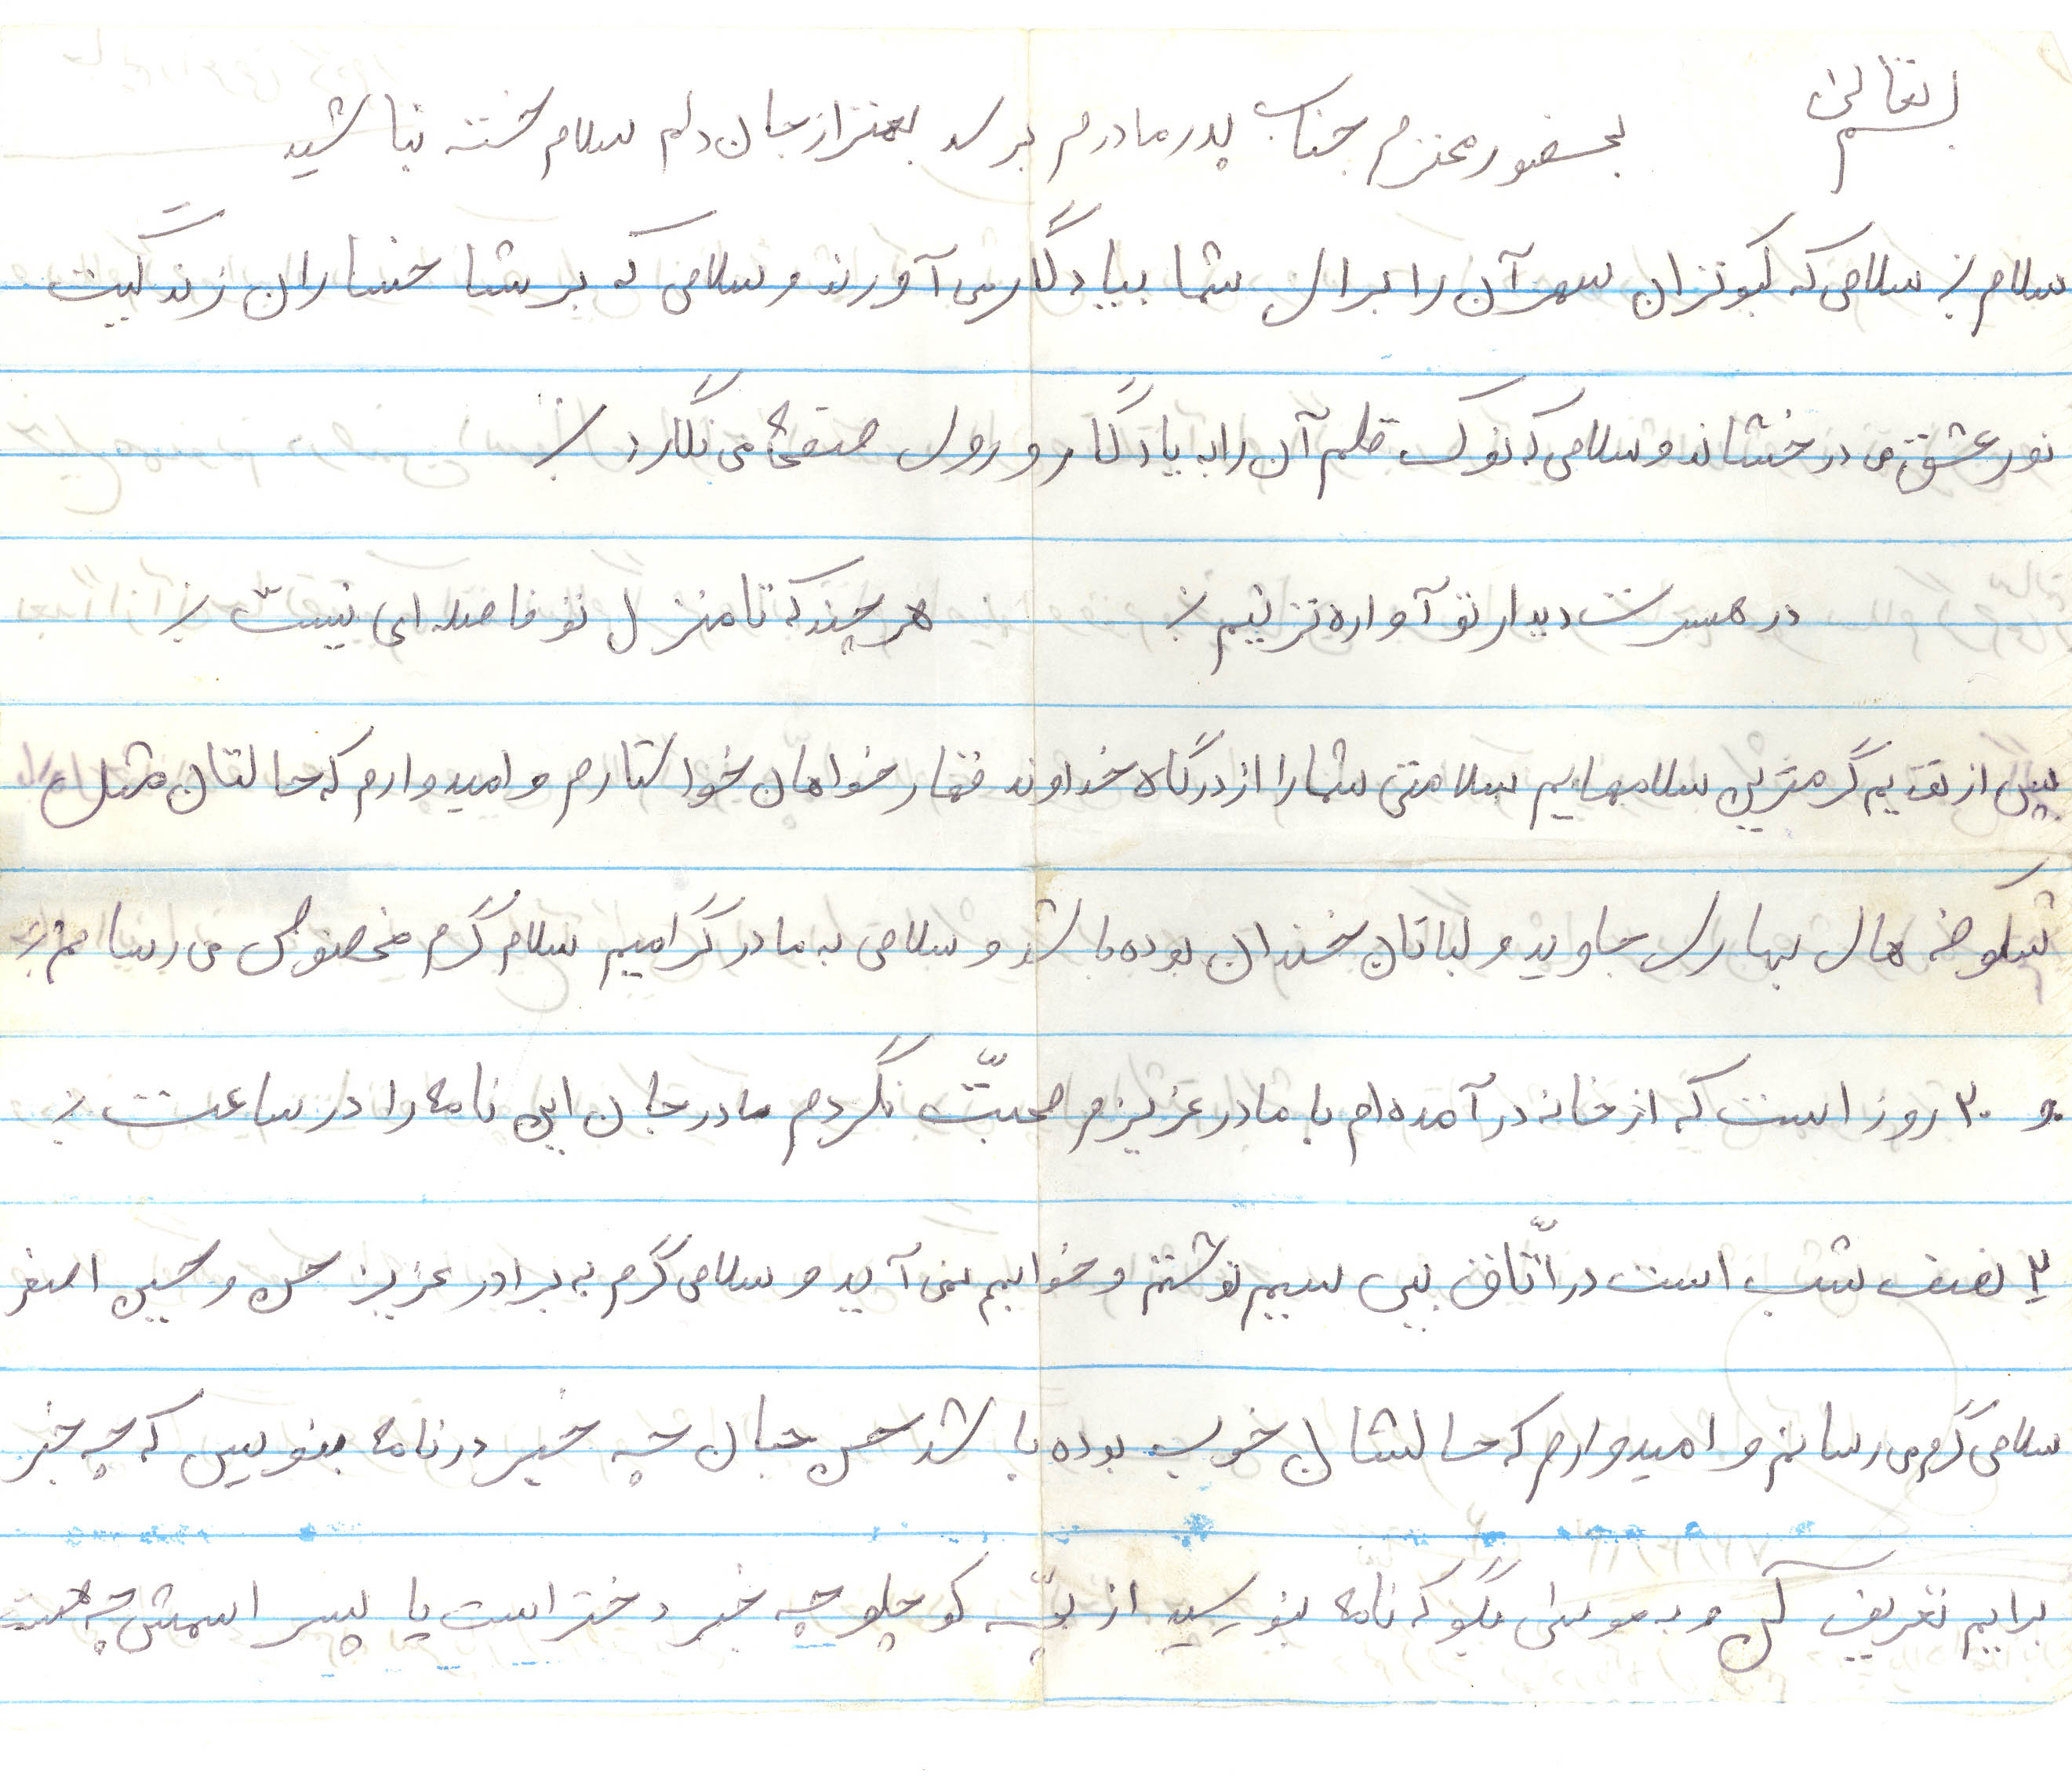 بسم تعالی
بحضور محترم جناب پدر مادرم برسد بهتر از جان دلم سلام خسته نباشید
سلام سلامی که کبوتران سهر آن را برای شما بیادگار می آورند و سلامی که بر شاخساران زندگیت
نور عشق می درخشاند و سلامی که نوک قلم آن را به یادگار و روی صفحه می نگارد
در حسرت دیدار تو آواره ترینیم هر چند که تا منزل تو فاصله ای نیست
پس از تقدیم گرمترین سلامهایم سلامتی شما را از درگاه خداوند خواهان خواستارم و امیدوارم که حالتان مثل
شکوفه های بهاری جاوید و لباتان خندان بوده باشد و سلامی به مادر گرامیم سلام گرم مخصوص می رسانم
و ۲۰ روز است که از خانه در آمده ام با مادر عزیزم صحبت نکردم مادر جان این نامه را در ساعت
۲ نصف شب است در اتاق بی سیم نوشتم و خوابم نمی آید و سلامی گرم به برادر عزیز حسن و حسین اصغر
سلامی گرم می رسانم و امیدوارم که حالشان خوب بوده باشد حسن جان چه خبر در نامه بنویس که چه خبر
برایم تعریف کن و به موسی بگو که نامه بنویسید از بچه کوچلو چه خبر دختر است یا پسر اسمش چه هست